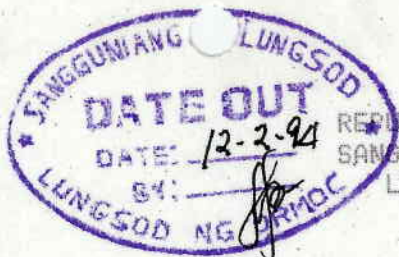 SANGGUNIANG LUNGSOD
DATE OUT
DATE: 12-2-94
BY:
LUNGSOD NG ORMOC
REPU
SANG
L